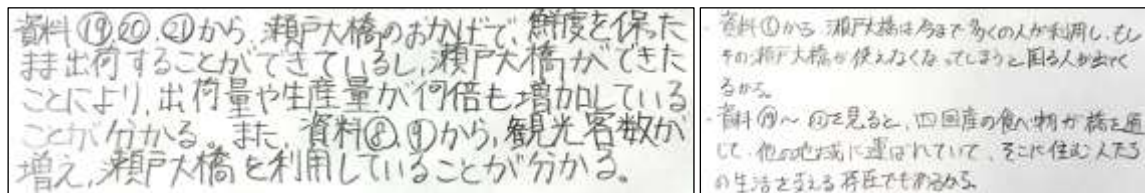 資料⑲,⑳,㉑から、瀬戸大橋のおかげで、鮮度を保った
まま出荷することができているし、瀬戸大橋ができた
ことにより、出荷量や生産量が何倍も増加している
ことが分かる。また、資料⑧,⑨から、観光客数が
増え、瀬戸大橋を利用していることが分かる。
・資料①から、瀬戸大橋は今まで多くの人が利用し、もし
その瀬戸大橋が使えなくなってしまうと困る人が出てく
るから。
・資料⑲〜㉑を見ると、四国産の食べ物が橋を通
して、他の地域に運ばれていて、そこに住む人たち
の生活を支える存在でもあるから。